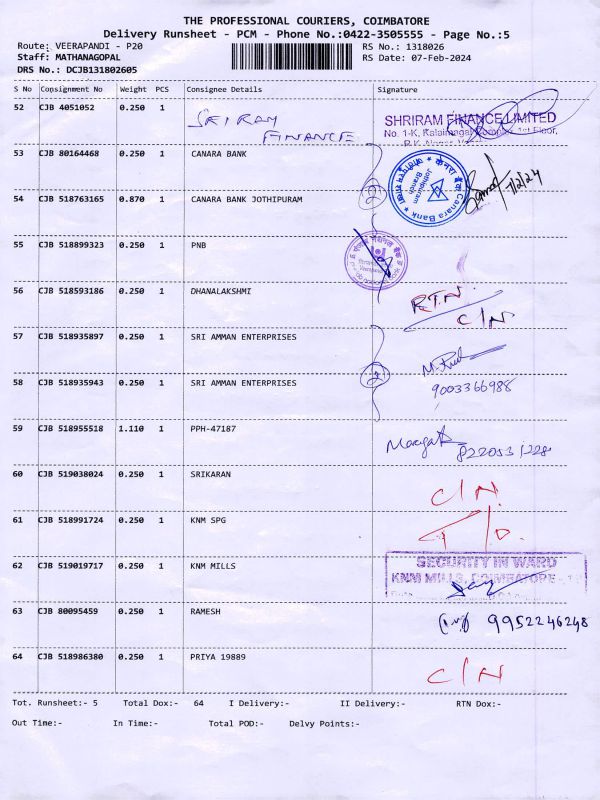 THE PROFESSIONAL COURIERS, COIMBATORE
Delivery Runsheet - PCM - Phone No.:0422-3505555 - Page No.:5
Route: VEERAPANDI - P20 RS No.: 1318026
Staff: MATHANAGOPAL RS Date: 07-Feb-2024
DRS No.: DCJB131802605
S No Consignment No Weight PCS Consignee Details Signature
52 CJB 4051052 0.250 1 SRI RAM FINANCE
SHRIRAM FINANCE LIMITED
No. 1-K, 1st Floor,
53 CJB 80164468 0.250 1 CANARA BANK
Canara Bank
Jothipuram
Branch
7/2/24
2
54 CJB 518763165 0.870 1 CANARA BANK JOTHIPURAM
55 CJB 518899323 0.250 1 PNB
56 CJB 518593186 0.250 1 DHANALAKSHMI RTN
C/N
57 CJB 518935897 0.250 1 SRI AMMAN ENTERPRISES
2
58 CJB 518935943 0.250 1 SRI AMMAN ENTERPRISES 9003366988
59 CJB 518955518 1.110 1 PPH-47187 8220531228
60 CJB 519038024 0.250 1 SRIKARAN C/N
61 CJB 518991724 0.250 1 KNM SPG
62 CJB 519019717 0.250 1 KNM MILLS SECURITY IN WARD
KNM MILLS, COIMBATORE
63 CJB 80095459 0.250 1 RAMESH 9952246248
64 CJB 518986380 0.250 1 PRIYA 19889 C/N
Tot. Runsheet:- 5 Total Dox:- 64 I Delivery:- II Delivery:- RTN Dox:-
Out Time:- In Time:- Total POD:- Delvy Points:-